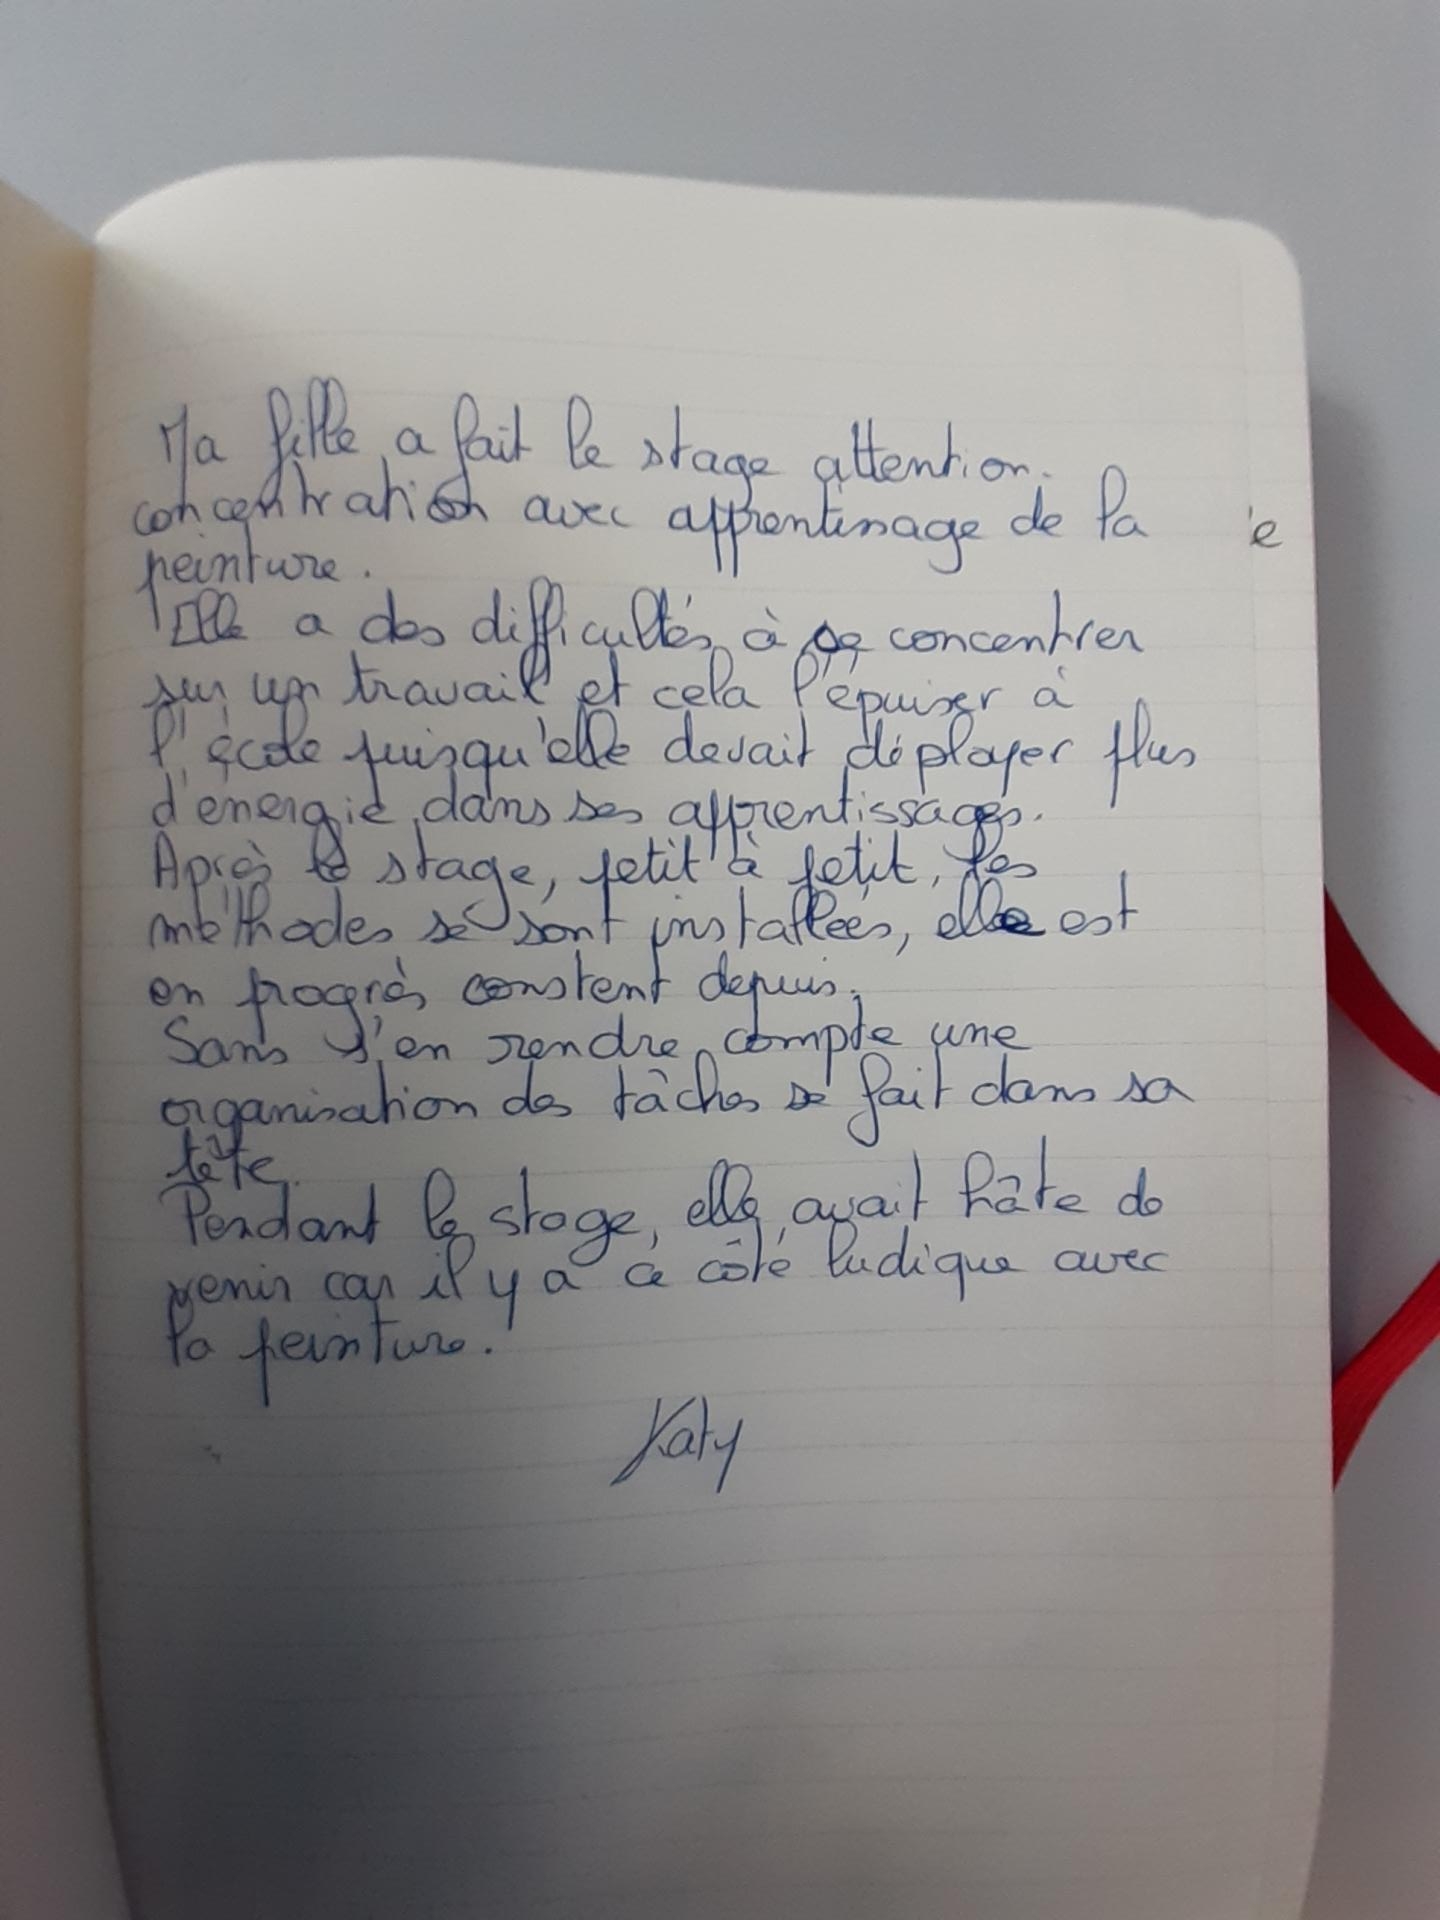 Ma fille a fait le stage attention.
concentration avec apprentissage de la
peinture.
Elle a des difficultés à se concentrer
sur un travail et cela l'épuiser à
l'école puisqu'elle devait déployer plus
d'énergie dans ses apprentissages.
Après le stage, petit à petit, les
méthodes se sont installées, elle est
en progrès constent depuis.
Sans s'en rendre compte une
organisation des tâches se fait dans sa
tête.
Pendant le stage, elle avait hâte de
venir car il y a ce côté ludique avec
la peinture.
Katy
e